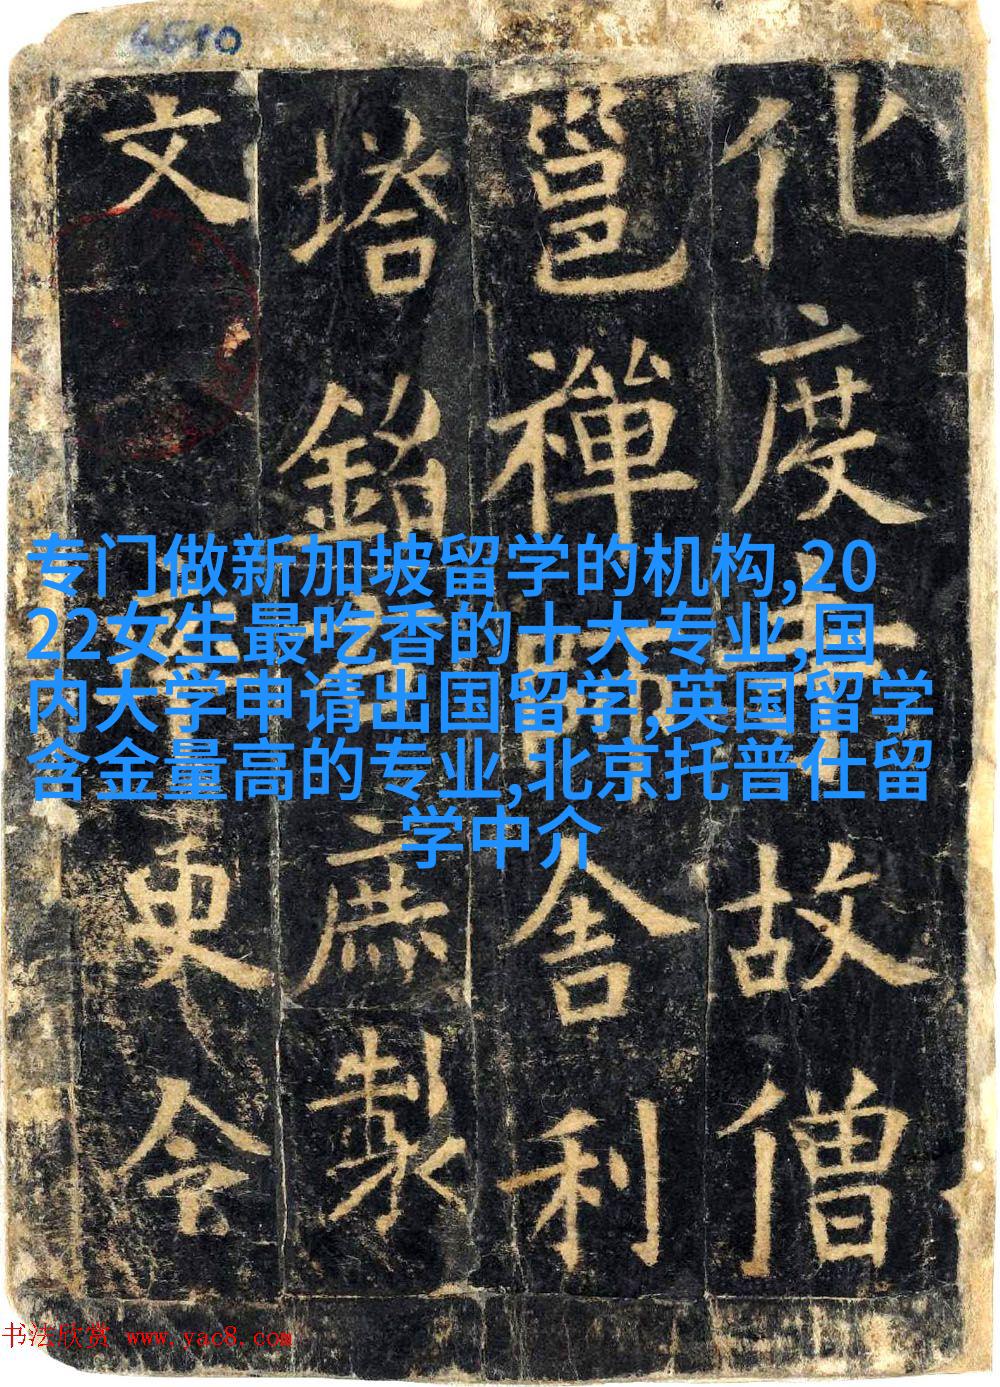 化度寺故僧
邕禪師舍利
塔銘右庶製
文率更令
专门做新加坡留学的机构,20
22女生最吃香的十大专业,国
内大学申请出国留学,英国留学
含金量高的专业,北京托普仕留
学中介
书法欣赏 www.yac8.com